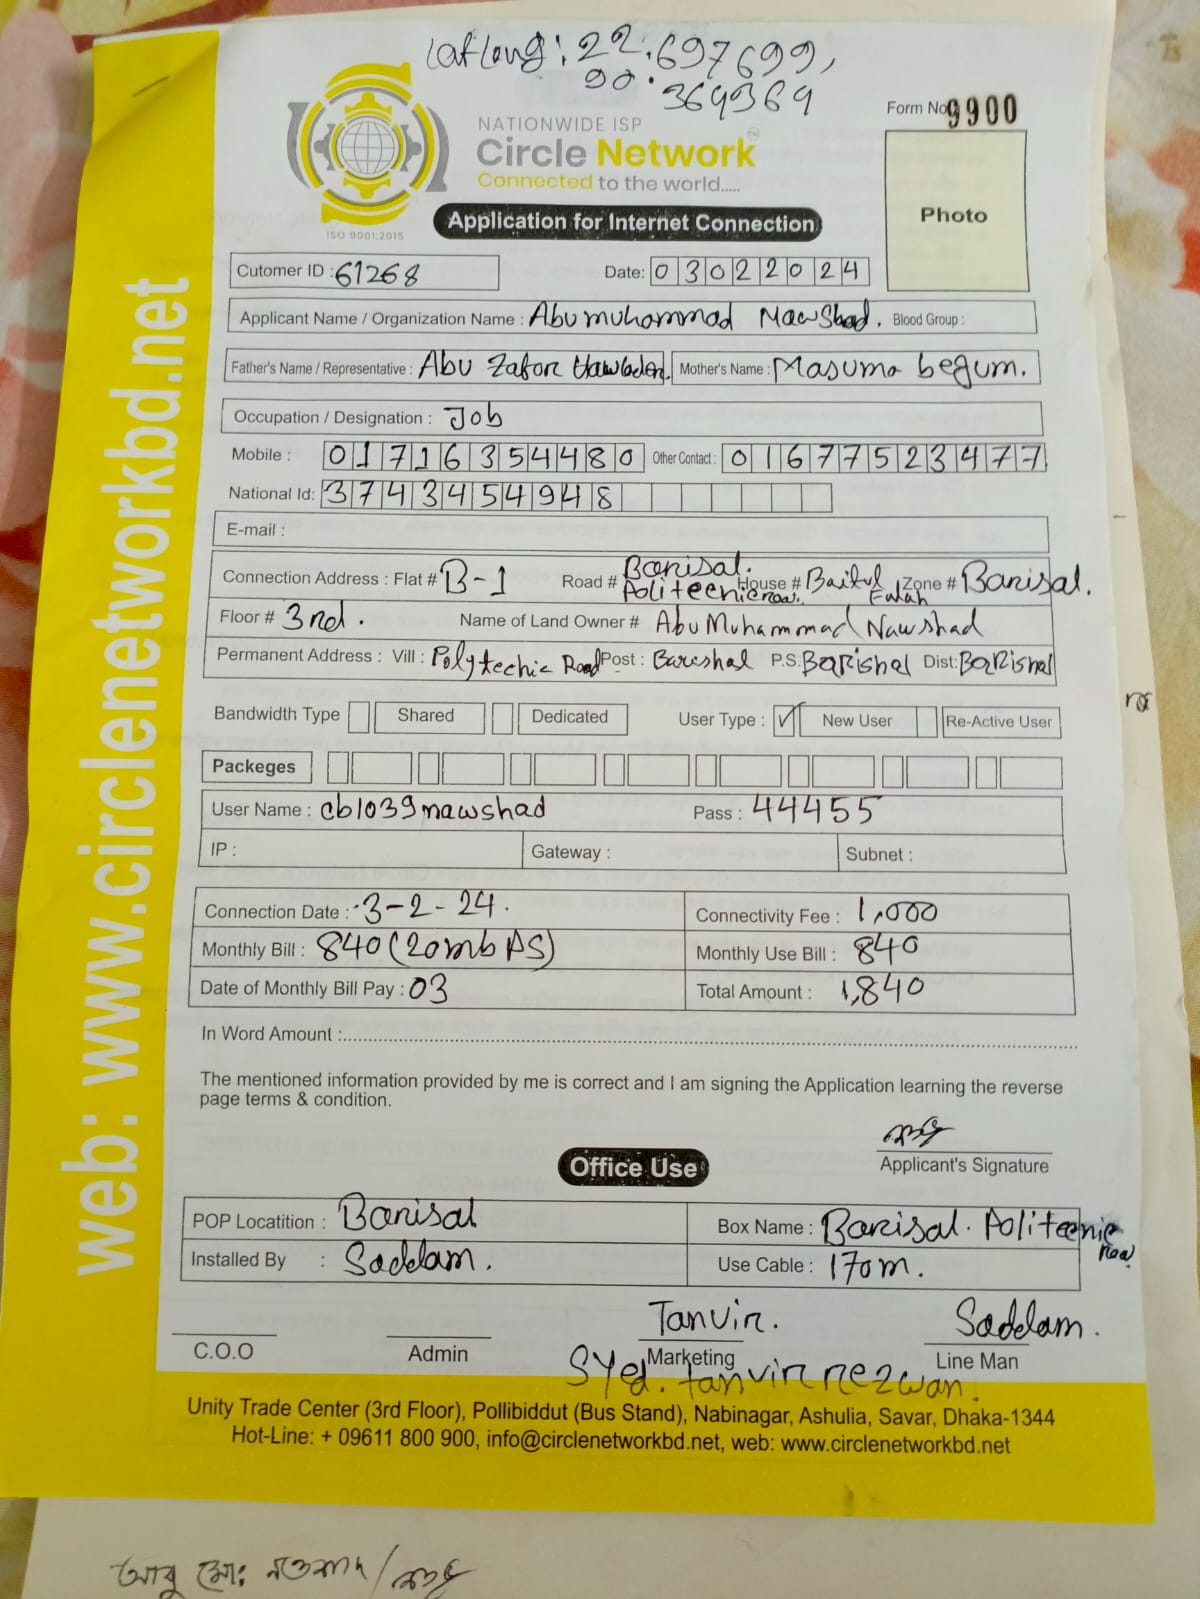 Lat Long: 22.697699,
90.364364
Form No 9900
NATIONWIDE ISP
Circle Network TM
Connected to the world.....
ISO 9001:2015
Application for Internet Connection
Photo
Cutomer ID : 61268
Date: 03022024
Applicant Name / Organization Name : Abu muhammad Nawshad. Blood Group :
Father's Name / Representative : Abu Zafor Hawlader. Mother's Name : Masuma begum.
Occupation / Designation : Job
Mobile : 01716354480 Other Contact : 01677523477
National Id: 3743454948
E-mail :
Connection Address : Flat # B-1 Road # Barisal. Politecnic road. House # Baitul Falah Zone # Barisal.
Floor # 3rd. Name of Land Owner # Abu Muhammad Nawshad
Permanent Address : Vill : Polytechic Road Post : Barishal P.S. Barishal Dist: Barishal
Bandwidth Type Shared Dedicated User Type : ✓ New User Re-Active User
Packeges
User Name : cb1039nawshad Pass : 44455
IP : Gateway : Subnet :
Connection Date : 3-2-24. Connectivity Fee : 1,000
Monthly Bill : 840 (20mbps) Monthly Use Bill : 840
Date of Monthly Bill Pay : 03 Total Amount : 1,840
In Word Amount :
The mentioned information provided by me is correct and I am signing the Application learning the reverse
page terms & condition.
Applicant's Signature
Office Use
POP Locatition : Barisal Box Name : Barisal. Politecnic Road
Installed By : Saddam. Use Cable : 170m.
Tanvir. Saddam.
C.O.O Admin Marketing Line Man
Syed. tanvir rezwan.
Unity Trade Center (3rd Floor), Pollibiddut (Bus Stand), Nabinagar, Ashulia, Savar, Dhaka-1344
Hot-Line: + 09611 800 900, info@circlenetworkbd.net, web: www.circlenetworkbd.net
web: www.circlenetworkbd.net
আবু মো: নওশাদ /